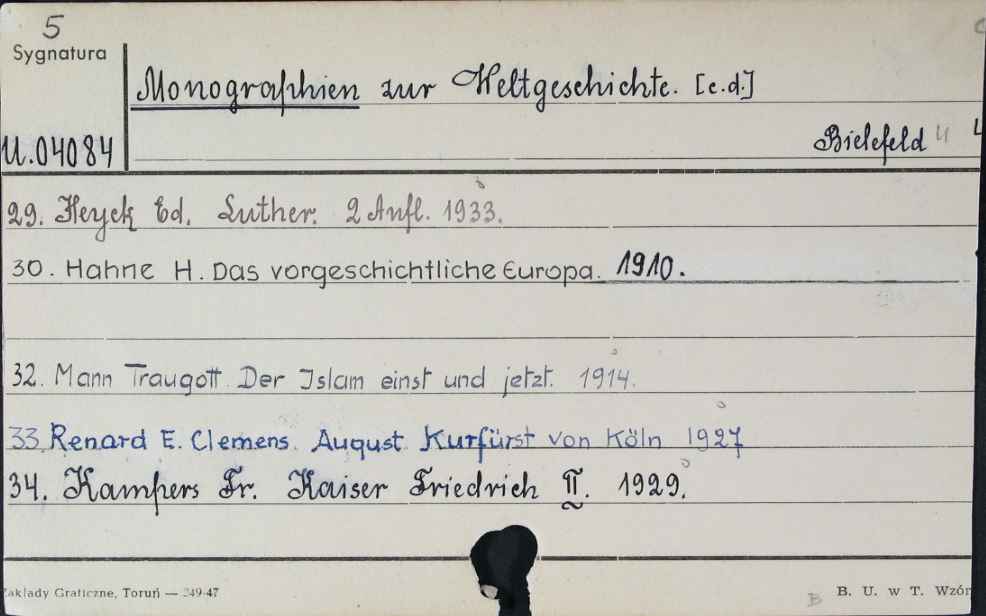 5
Sygnatura
Monographien zur Weltgeschichte. [c.d.]
U.04084
Bielefeld u
29. Heyck Ed. Luther. 2 Aufl. 1933.
30. Hahne H. Das vorgeschichtliche Europa. 1910.
32. Mann Traugott. Der Islam einst und jetzt. 1914.
33. Renard E. Clemens. August Kurfürst von Köln 1927
34. Kampers Fr. Kaiser Friedrich II. 1929.
Zaklady Graficzne, Toruń — 249-47
B
B. U. w T. Wzór